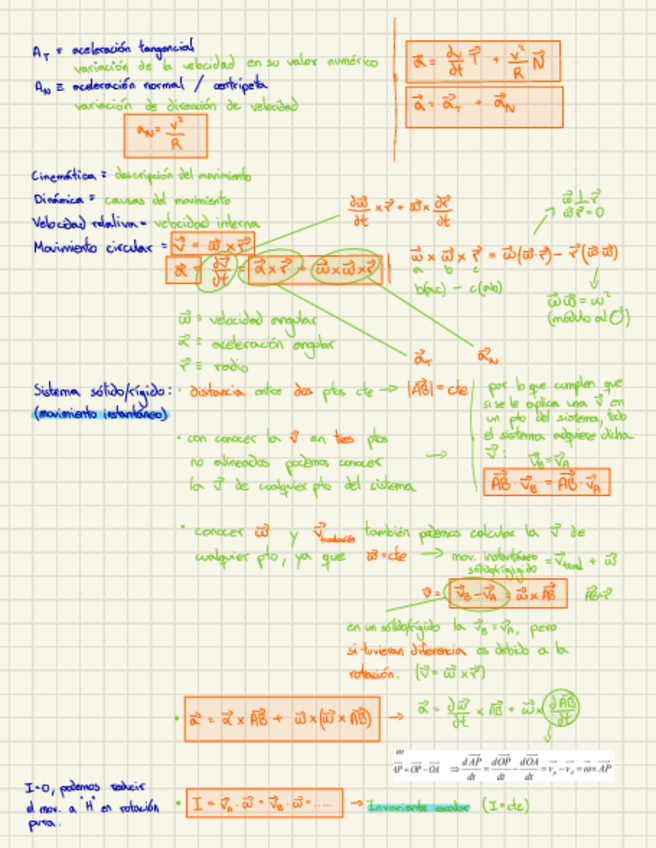 A_T ≡ aceleración tangencial
variación de la velocidad en su valor numérico
A_N ≡ aceleración normal / centrípeta
variación de dirección de velocidad
a_N = v²/R
a⃗ = dv/dt T⃗ + v²/R N⃗
a⃗ = a⃗_T + a⃗_N
Cinemática = descripción del movimiento
Dinámica = causas del movimiento
Velocidad relativa = velocidad interna
Movimiento circular = v⃗ = ω⃗ × r⃗
dω⃗/dt × r⃗ + ω⃗ × dr⃗/dt
a⃗ = dv⃗/dt = α⃗ × r⃗ + ω⃗ × ω⃗ × r⃗
ω⃗ ⊥ r⃗
ω⃗ r⃗ = 0
ω⃗ × ω⃗ × r⃗ = ω⃗(ω⃗·r⃗) − r⃗(ω⃗·ω⃗)
a b c
b(ac) − c(ab)
ω⃗ ω⃗ = ω²
(módulo al
ω⃗ = velocidad angular
α⃗ = aceleración angular
r⃗ = radio
a⃗_T
a⃗_N
Sistema sólido/rígido:
(movimiento instantáneo)
· distancia entre dos ptos cte → |AB| = cte
por lo que cumplen que
si se le aplica una v⃗ en
un pto del sistema, todo
el sistema adquiere dicha
v⃗:
v⃗_B = v⃗_A
AB · v⃗_B = AB · v⃗_A
· con conocer la v⃗ en tres ptos
no alineados podemos conocer
la v⃗ de cualquier pto del sistema
→
· conocer ω⃗ y v⃗ traslación también podemos calcular la v⃗ de
cualquier pto, ya que ω⃗ = cte → mov. instantáneo
sólido/rígido
= v⃗ + ω⃗
v⃗ = v⃗_B − v⃗_A = ω⃗ × AB
AB = r⃗
en un sólido/rígido la v⃗_B = v⃗_A, pero
si tuvieran diferencia es debido a la
rotación. (v⃗ = ω⃗ × r⃗)
· a⃗ = α⃗ × AB + ω⃗ × (ω⃗ × AB) → a⃗ = dω⃗/dt × AB + ω⃗ × dAB/dt
AP = OP − OA ⇒ dAP/dt = dOP/dt − dOA/dt = v_P − v_A = ω × AP
I=0, podemos reducir
el mov. a "H" en rotación
pura.
· I = v⃗_A · ω⃗ = v⃗_B · ω⃗ = ..... → Invariante escalar (I = cte)